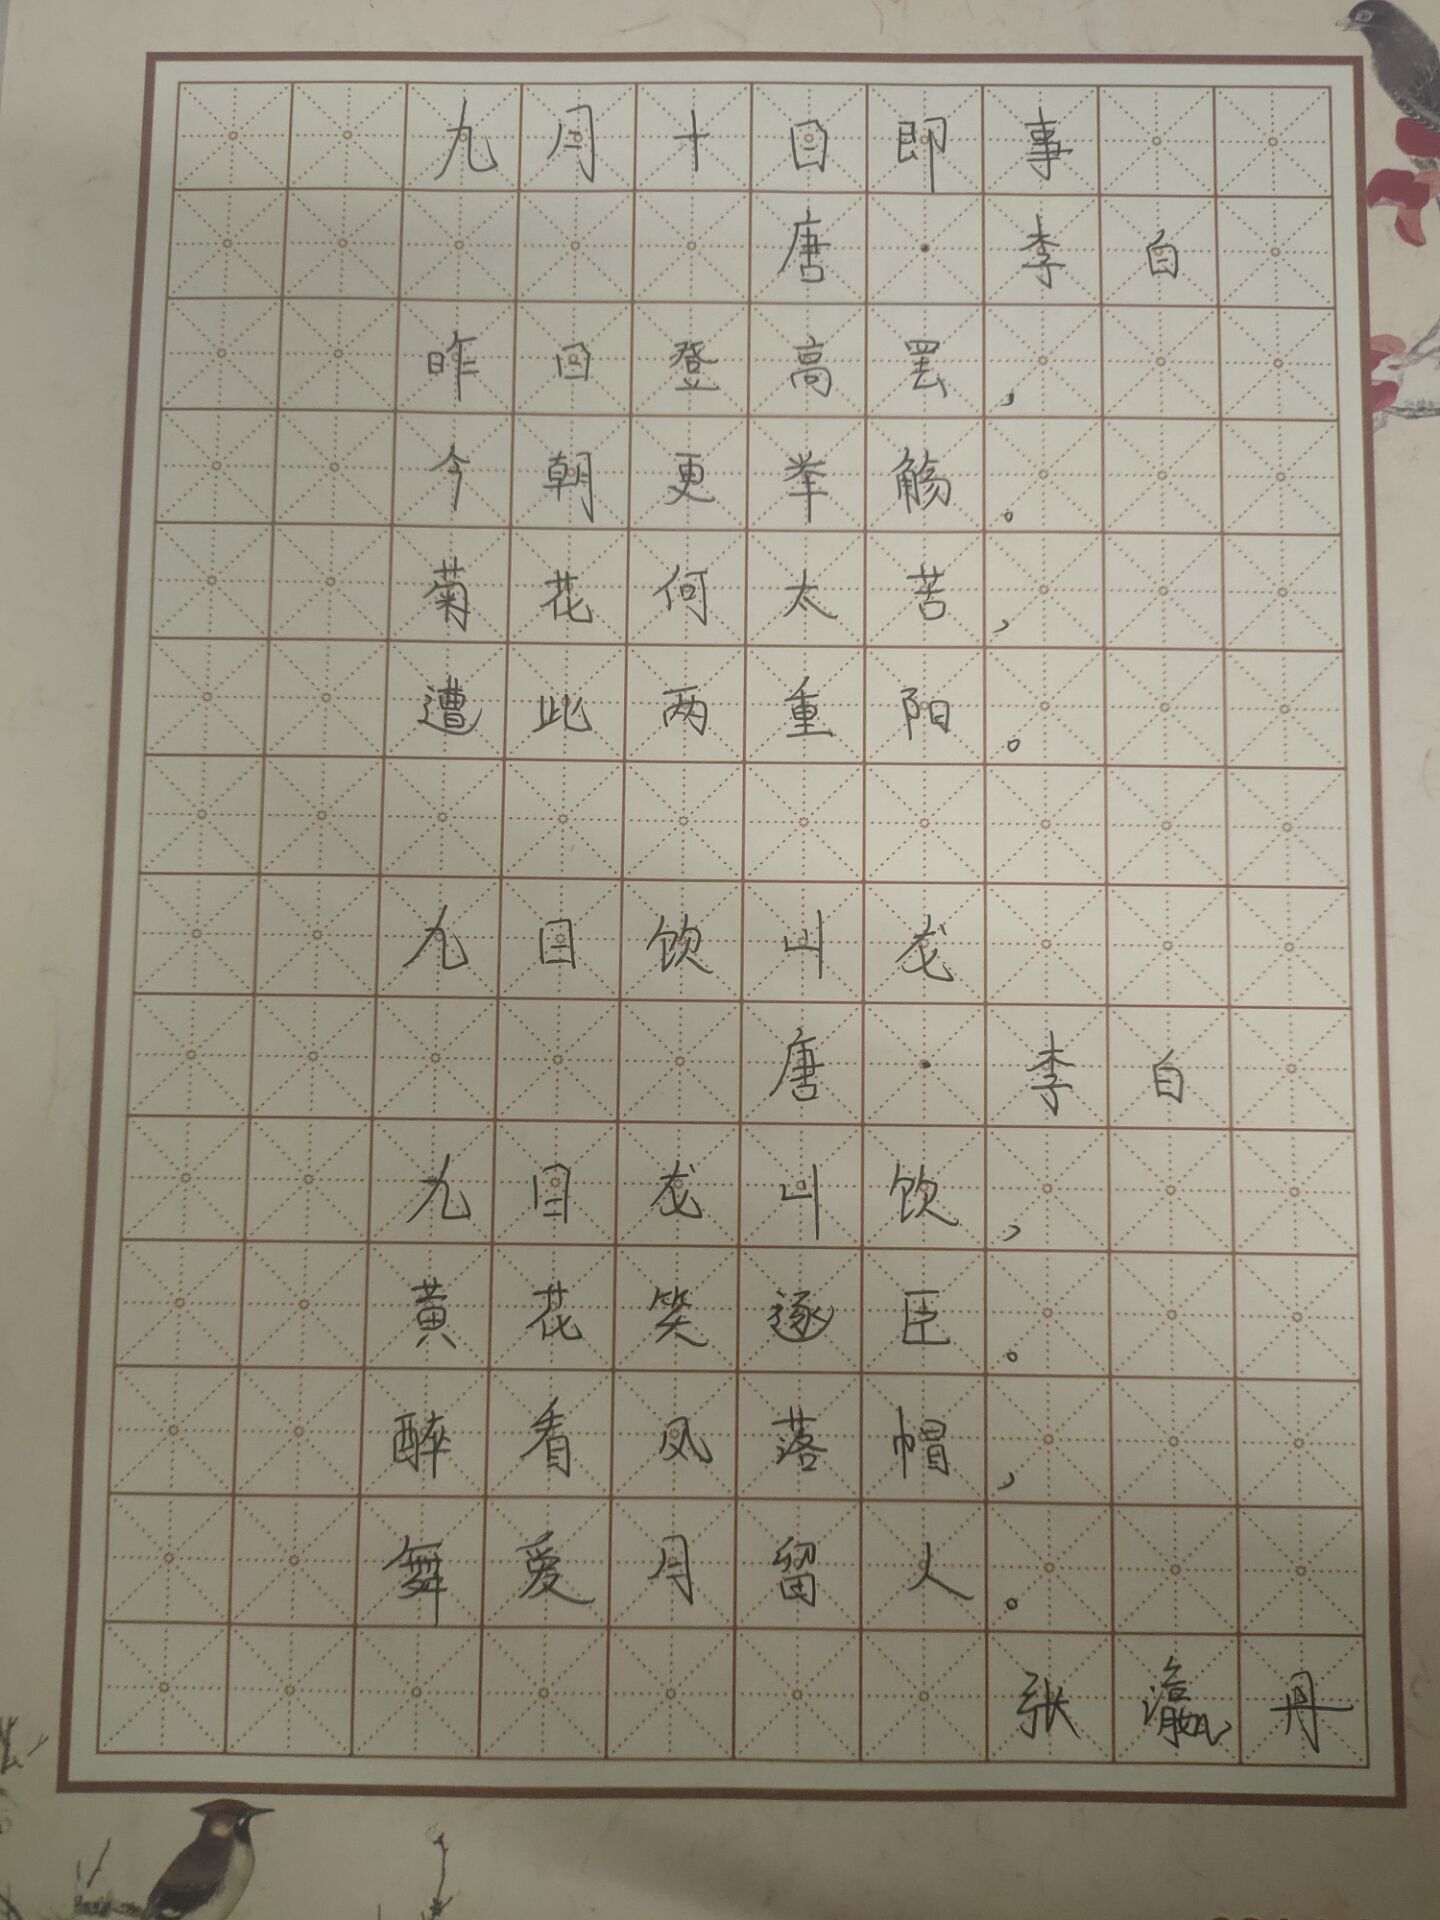 九月十日即事
唐·李白
昨日登高罢，
今朝更举觞。
菊花何太苦，
遭此两重阳。
九日饮山龙
唐·李白
九日龙山饮，
黄花笑逐臣。
醉看风落帽，
舞爱月留人。
张瀛丹